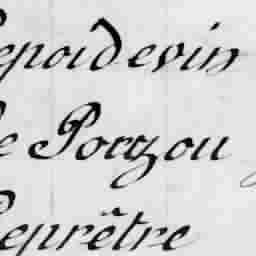 Lepoidevin
de Porzou
Leprêtre